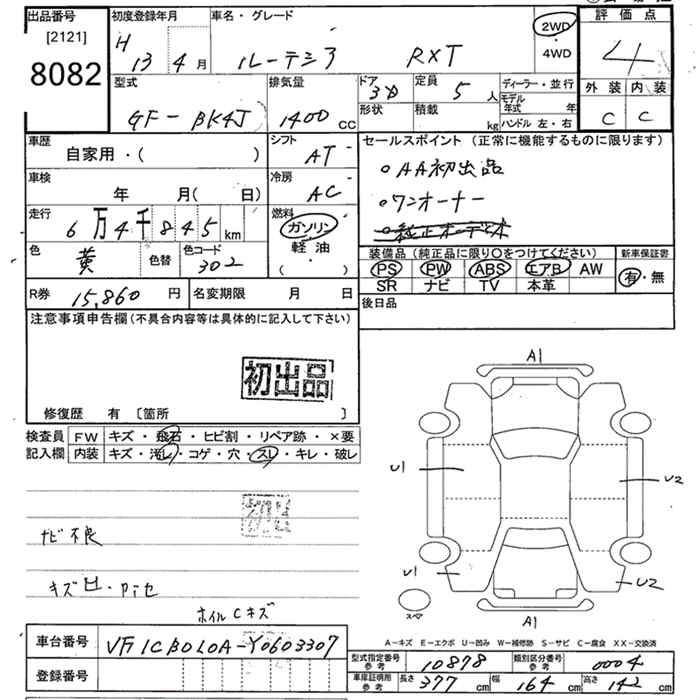 出品番号 初度登録年月 車名・グレード 2WD 評価点
[2121] H 13 年 4 月 ルーテシア RXT ・4WD 4
8082 型式 排気量 ドア 定員 ディーラー・並行 外装 内装
GF-BK4J 1400 CC 3D 5 人 モデル年式 年 C C
形状 積載 kg ハンドル 左・右
車歴 シフト セールスポイント (正常に機能するものに限ります)
自家用・( ) AT 。AA初出品
車検 冷房
年 月( 日) AC 。ワンオーナー
走行 燃料
6万4千845 km ガソリン 。純正オーディオ
色 色替 色コード 軽油 装備品 (純正品に限り○をつけてください) 新車保証書
黄 302 ( ・ ) PS PW ABS エアB AW 有・無
SR ナビ TV 本革
R券 15,860 円 名変期限 月 日 後日品
注意事項申告欄(不具合内容等は具体的に記入して下さい)
初出品
修復歴 有 〔箇所 〕
検査員 FW キズ・飛石・ヒビ割・リペア跡・×要
記入欄 内装 キズ・汚れ・コゲ・穴・スレ・キレ・破レ
A1
U1 U2
ナビ不良
U1 U2
キズ凹・
スペア
A1
ホイルCキズ
A-キズ E-エクボ U-凹み W-補修跡 S-サビ C-腐食 XX-交換済
車台番号 VF1CB0L0A-Y0603307
型式指定番号 参考 10878 類別区分番号 参考 0004
登録番号 車庫証明用 参考 長さ 377 cm 幅 164 cm 高さ 142 cm